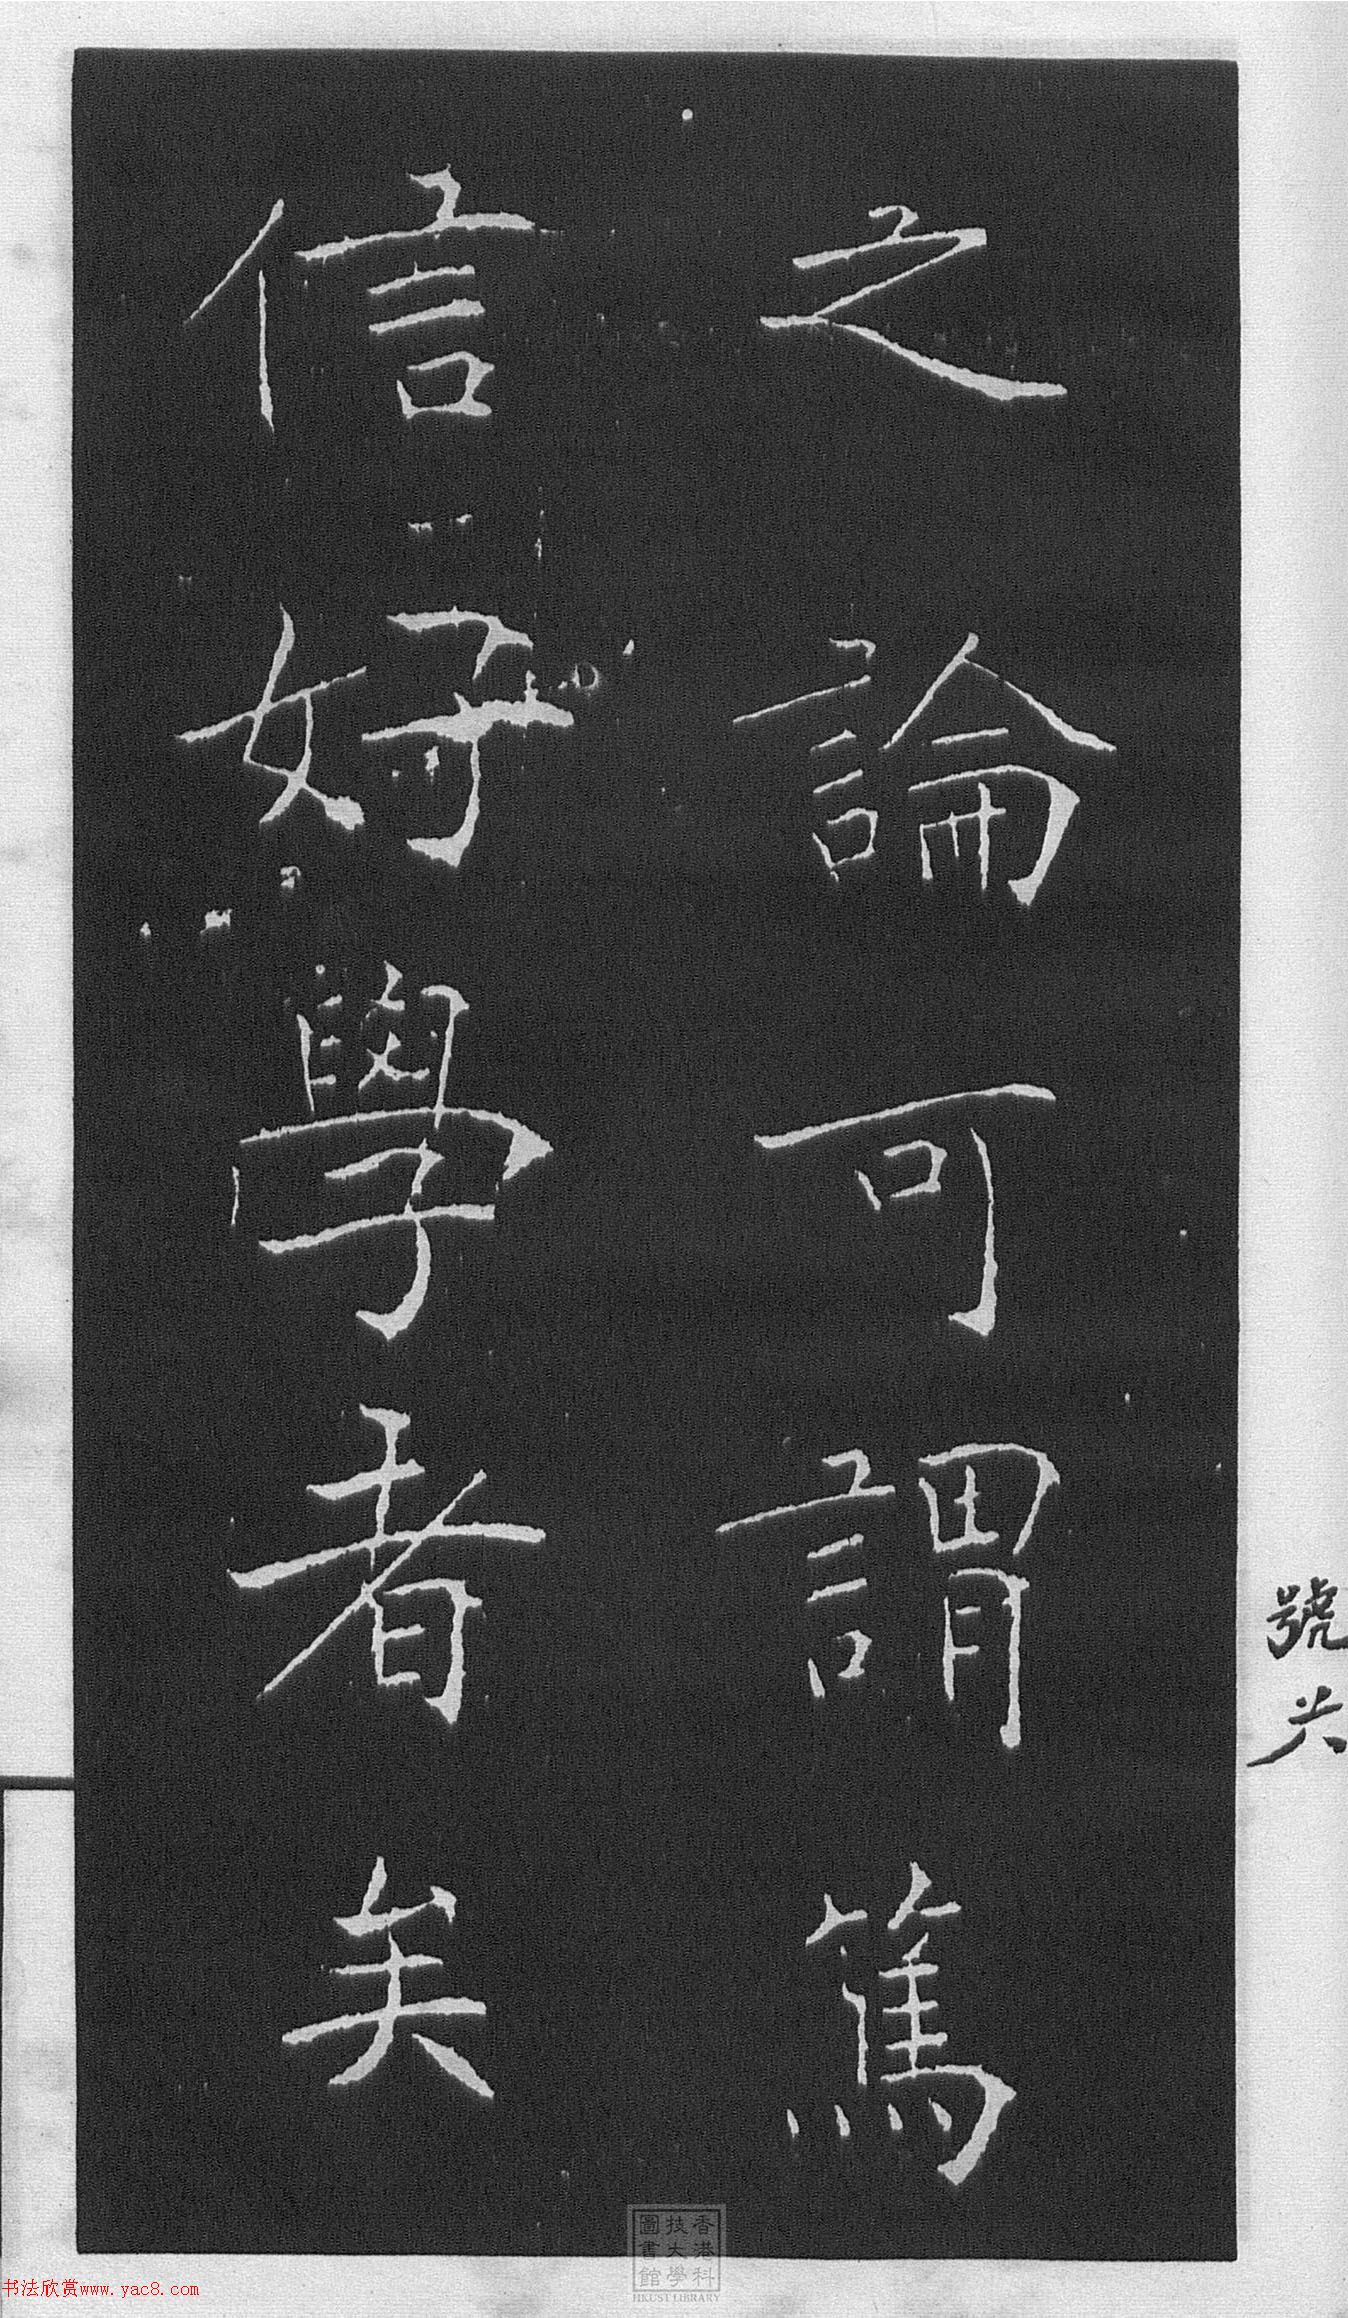 之論可謂篤
信好學者矣
號
香港科
技大學
圖書館
HKUST LIBRARY
书法欣赏www.yac8.com